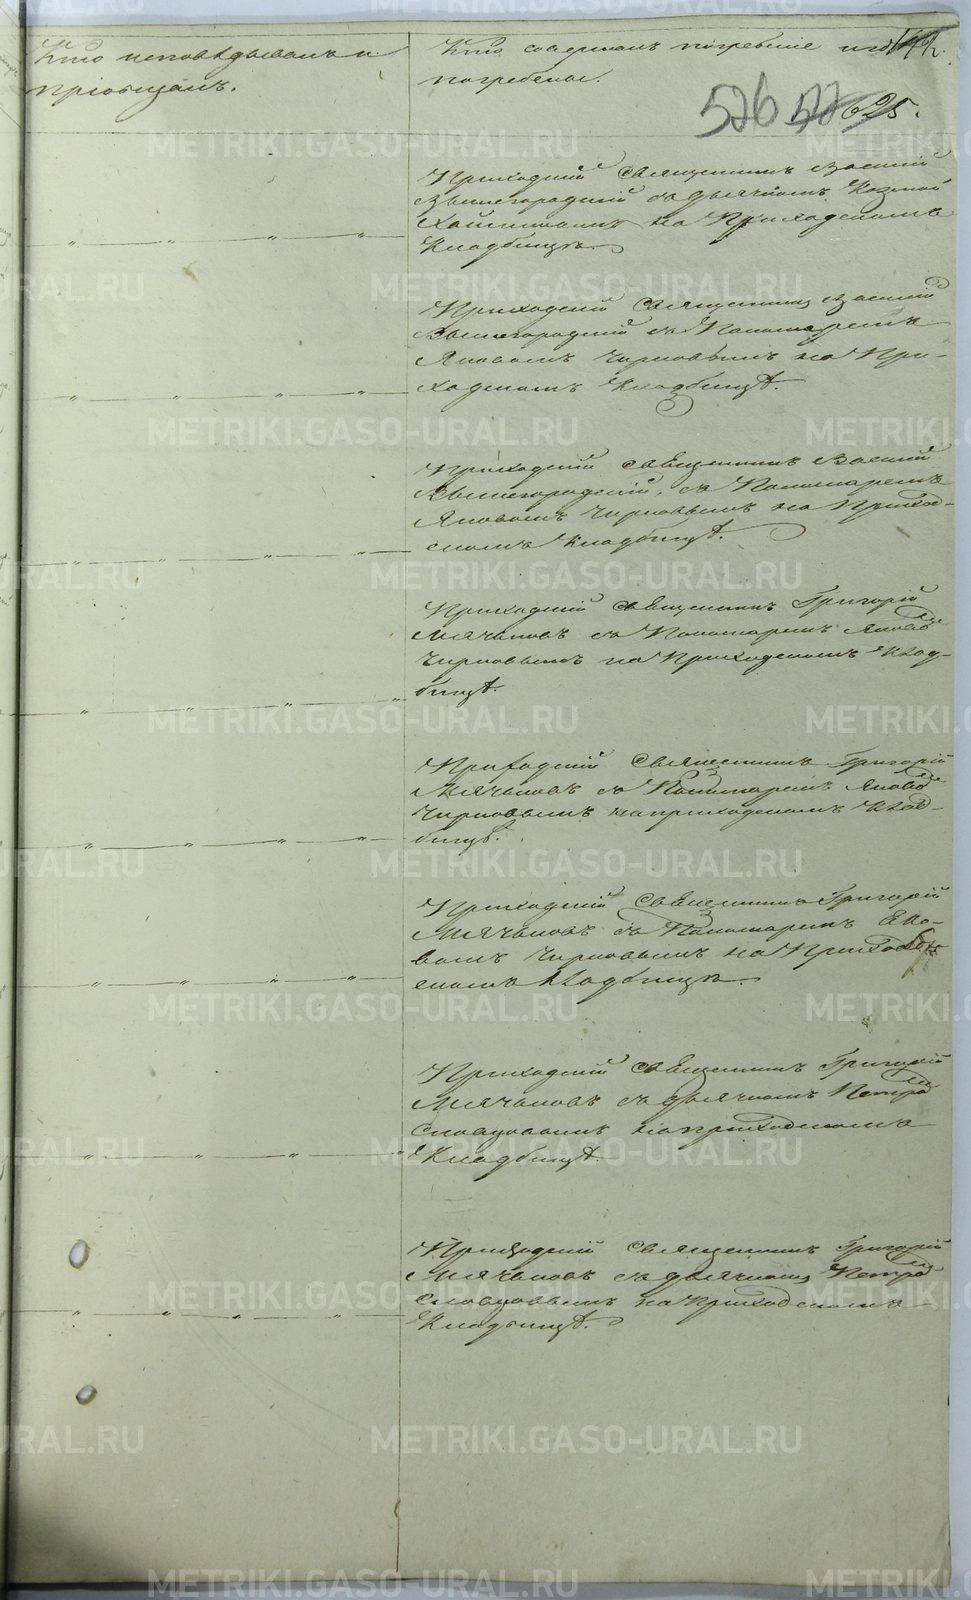 Кто исповѣдывалъ и
пріобщалъ.
Кто совершалъ погребеніе и гдѣ
погребены.
526
625.
Приходскій Священникъ Василій
Вышегородскій съ дьячкомъ Козмой
на Приходскомъ
Кладбищѣ.
Приходскій Священникъ Василій
Вышегородскій съ Пономаремъ
Яковомъ Чирковымъ на При-
ходскомъ Кладбищѣ.
Приходскій Священникъ Василій
Вышегородскій, съ Пономаремъ
Яковомъ Чирковымъ на Приход-
скомъ Кладбищѣ.
Приходскій Священникъ Григорій
Мячковъ съ Пономаремъ Яковомъ
Чирковымъ на Приходскомъ Клад-
бищѣ.
Приходскій Священникъ Григорій
Мячковъ съ Пономаремъ Яковомъ
Чирковымъ на приходскомъ Клад-
бищѣ.
Приходскій Священникъ Григорій
Мячковъ съ Пономаремъ Яко-
вомъ Чирковымъ на Приход-
скомъ Кладбищѣ.
Приходскій Священникъ Григорій
Мячковъ съ дьячкомъ Петромъ
Словцовымъ на приходскомъ
Кладбищѣ.
Приходскій Священникъ Григорій
Мячковъ съ дьячкомъ Петромъ
Словцовымъ на Приходскомъ
Кладбищѣ.
METRIKI.GASO-URAL.RU